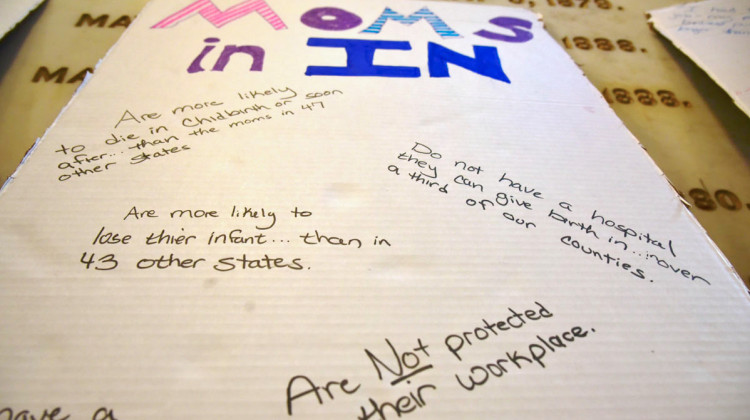 Moms
in IN
Are more likely
to die in Chidbirth or soon
after... than the moms in 47
other states
Do not have a hospital
they can give birth in... in over
a third of our
counties.
Are more likely to
lose thier infant... than in
43 other states.
Are Not protected
their workplace.
have a
MA
1878.
MA
1888.
1888.